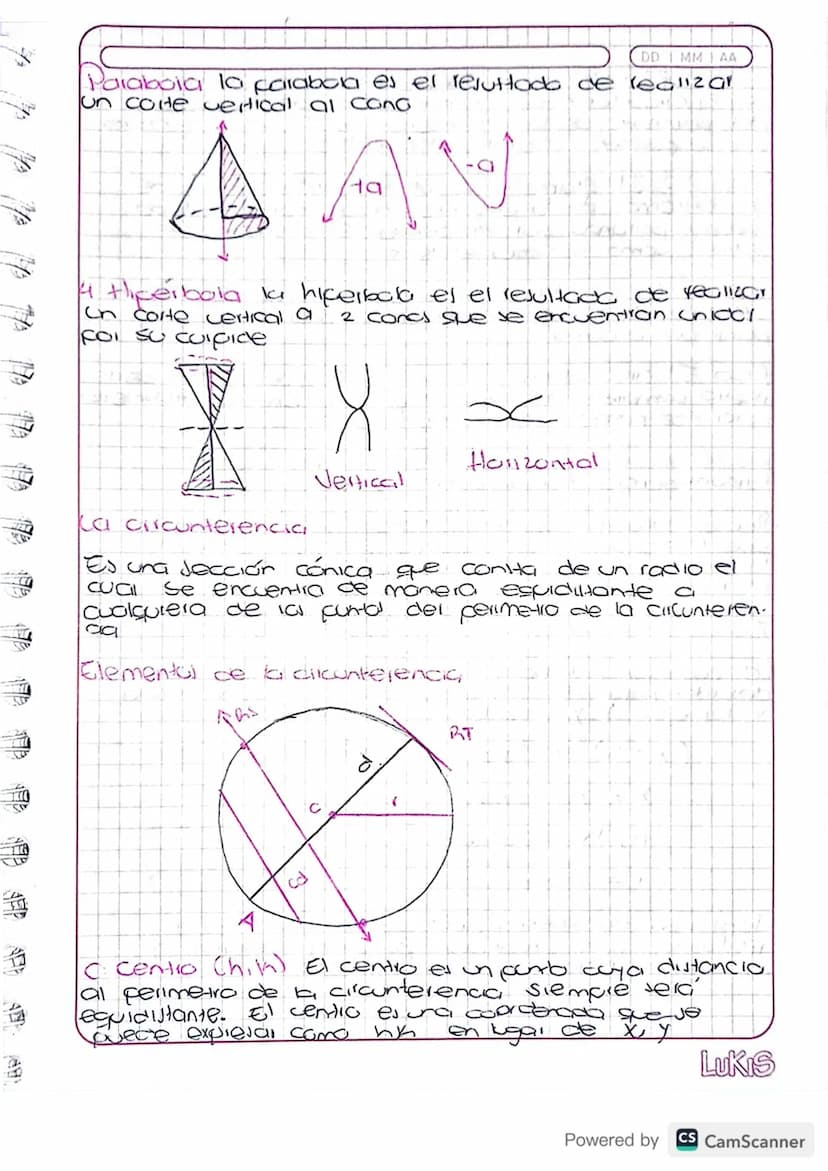 DD | MM | AA
Parabola la parabola es el resultado de realizar
un corte vertical al cono
+a
-a
4 Hipérbola la hiperbola es el resultado de realizar
un corte vertical a 2 conos que se encuentran unidos
por su cuspide
Vertical
Horizontal
La circunferencia
Es una sección cónica que consta de un radio el
cual se encuentra de manera equidistante a
cualquiera de los puntos del perimetro de la circunferen-
cia
Elementos de la circunferencia
Rs
RT
d
C
r
A
C Centro (h,k) El centro es un punto cuya distancia
al perimetro de la circunferencia siempre será
equidistante. El centro es una coordenada que se
puede expresar como hk en lugar de x y
LUKIS
Powered by CS CamScanner